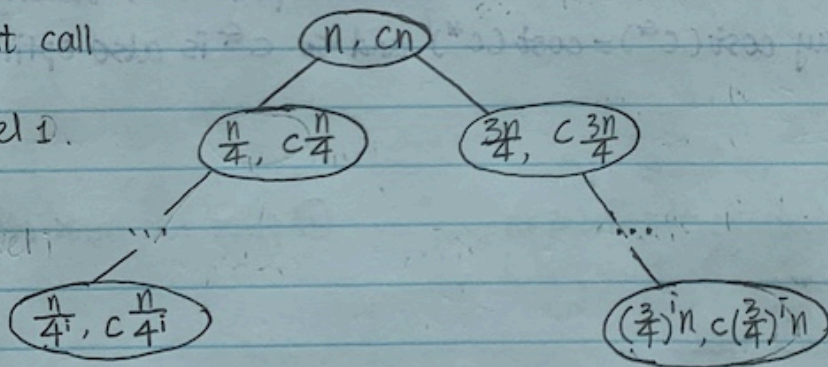 t call
n, cn
el 1.
n/4, c n/4
3n/4, c 3n/4
...
...
n/4^i, c n/4^i
(3/4)^i n, c(3/4)^i n